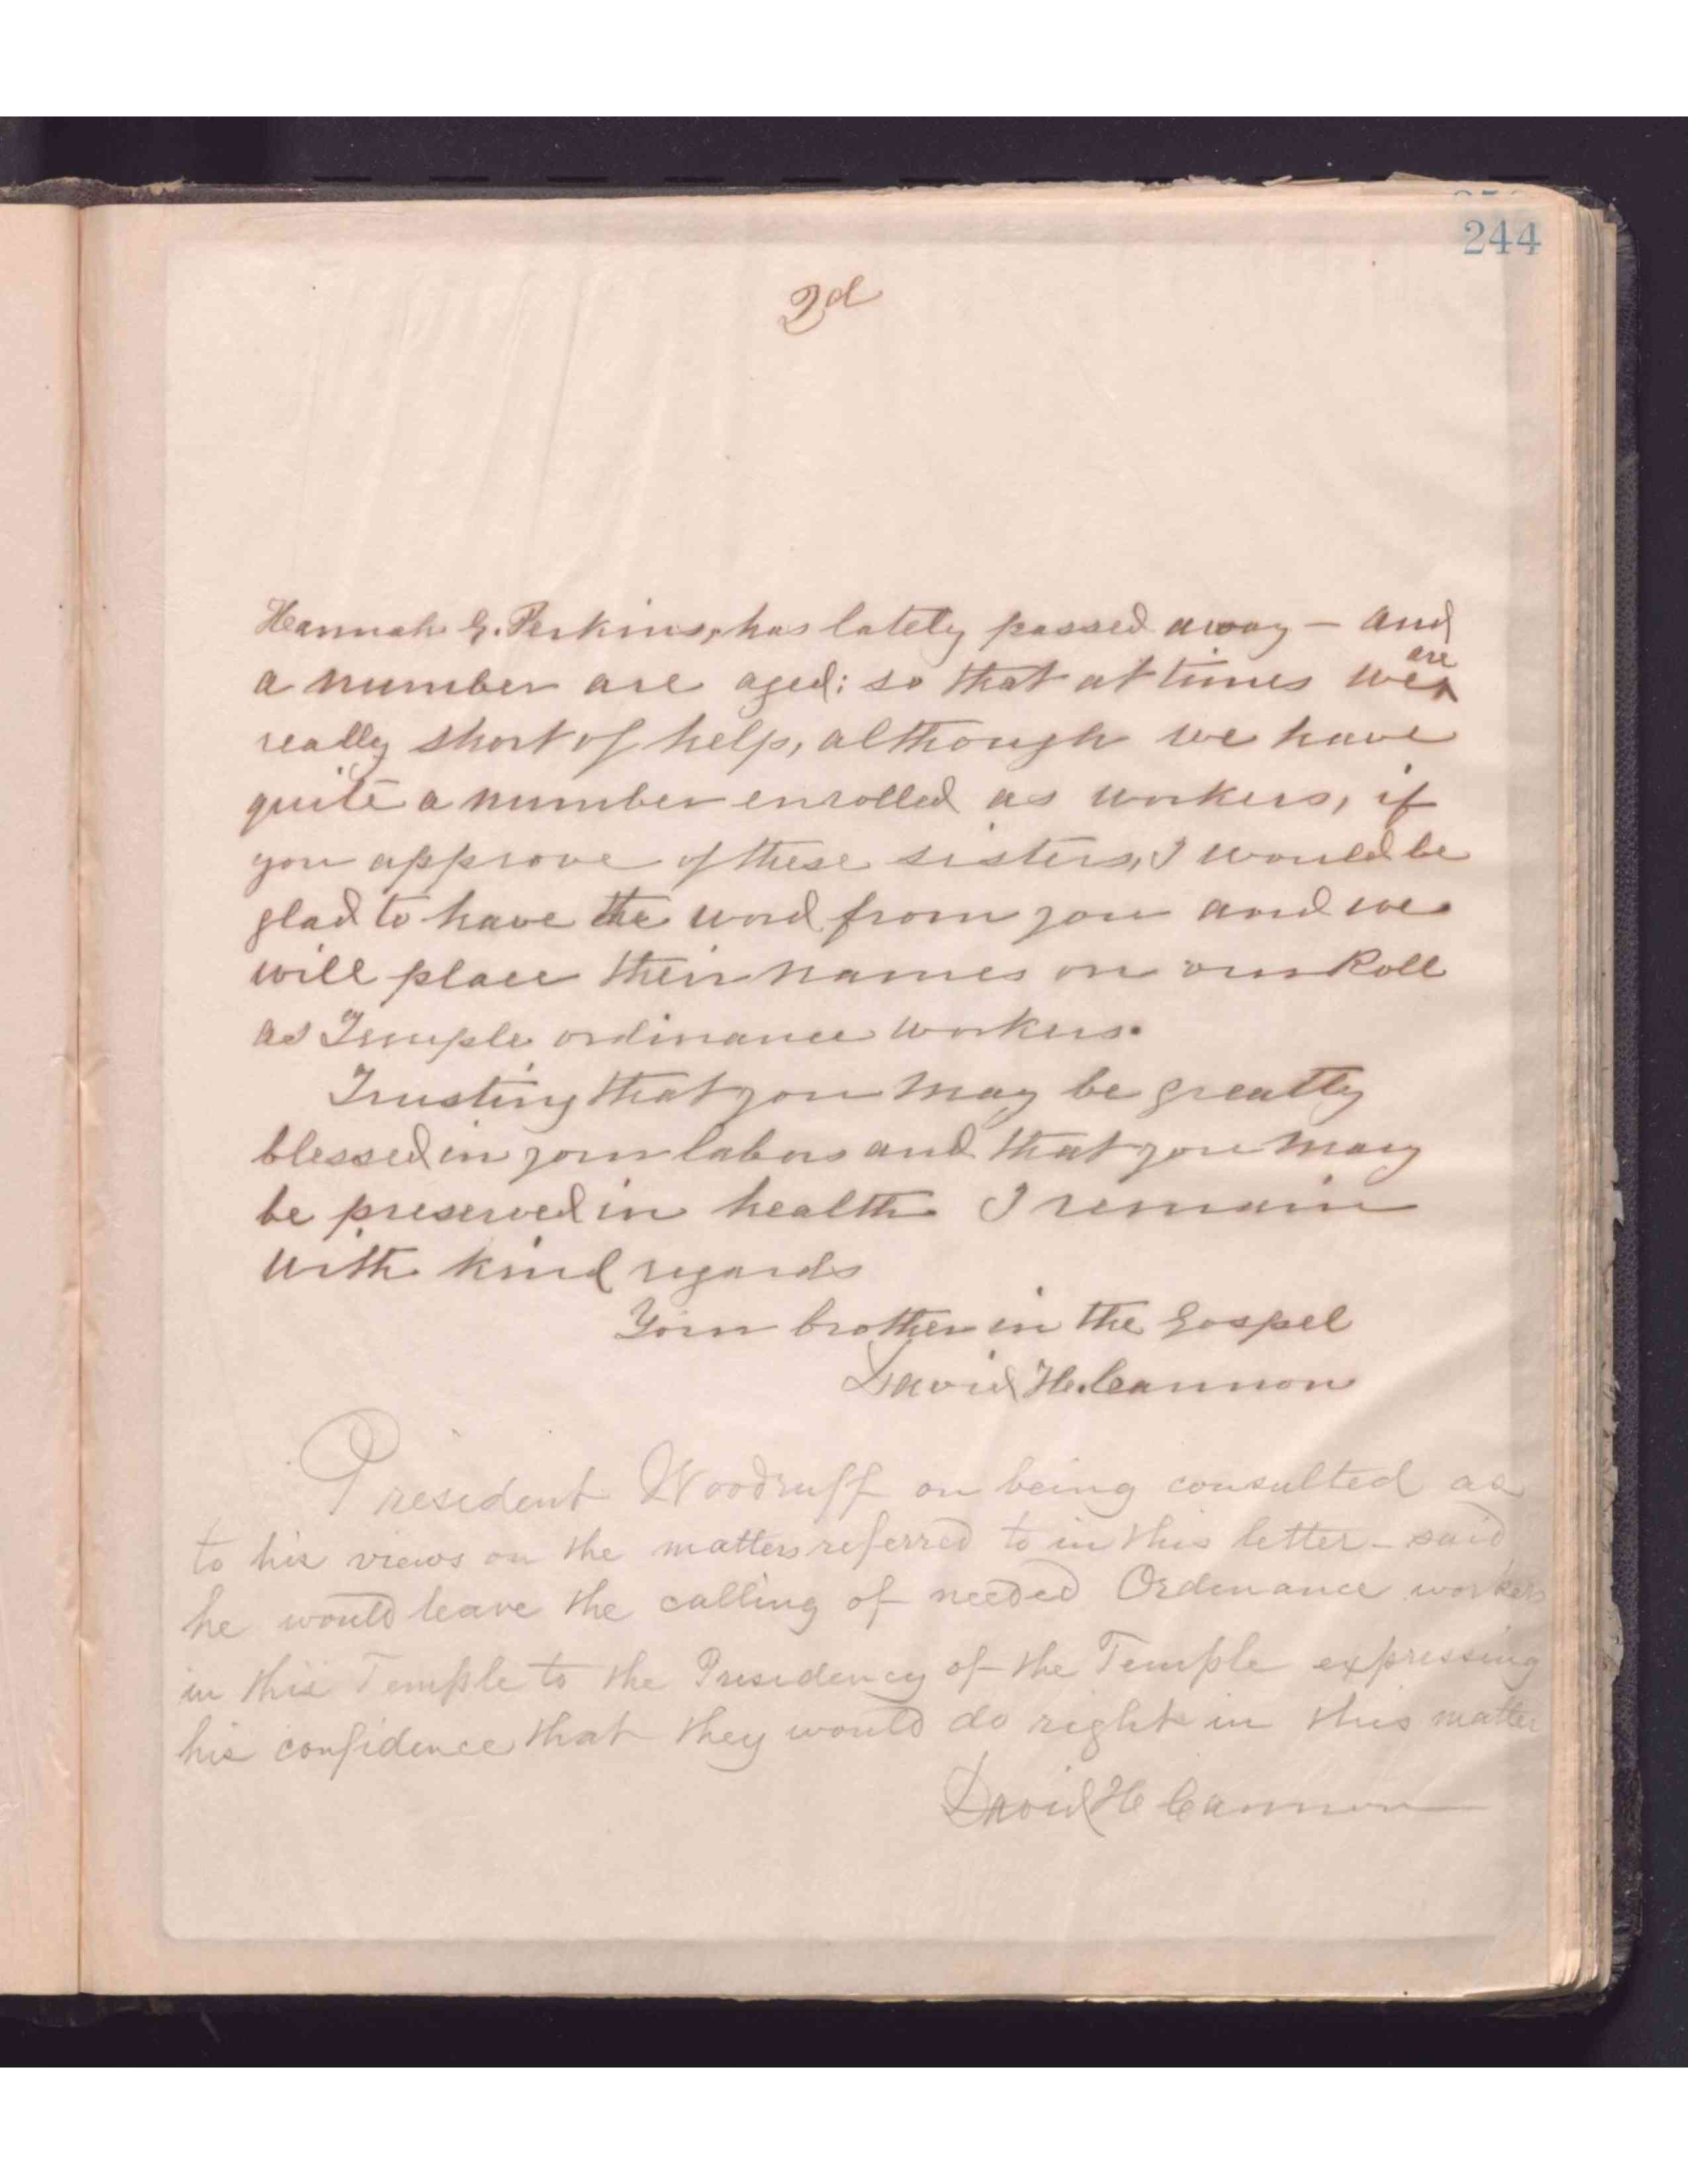 244
2d
Hannah G. Perkins, has lately passed away — and
a number are aged; so that at times we ^are
really short of help, although we have
quite a number enrolled as workers, if
you approve of these sisters, I would be
glad to have the word from you and we
will place their names on our Roll
as Temple ordinance workers.
Trusting that you may be greatly
blessed in your labors and that you may
be preserved in health I remain
with kind regards
Your brother in the Gospel
David H. Cannon
President Woodruff on being consulted as
to his views on the matters referred to in this letter - said
he would leave the calling of needed Ordenance workers
in this Temple to the Presidency of the Temple expressing
his confidence that they would do right in this matter
David H Cannon